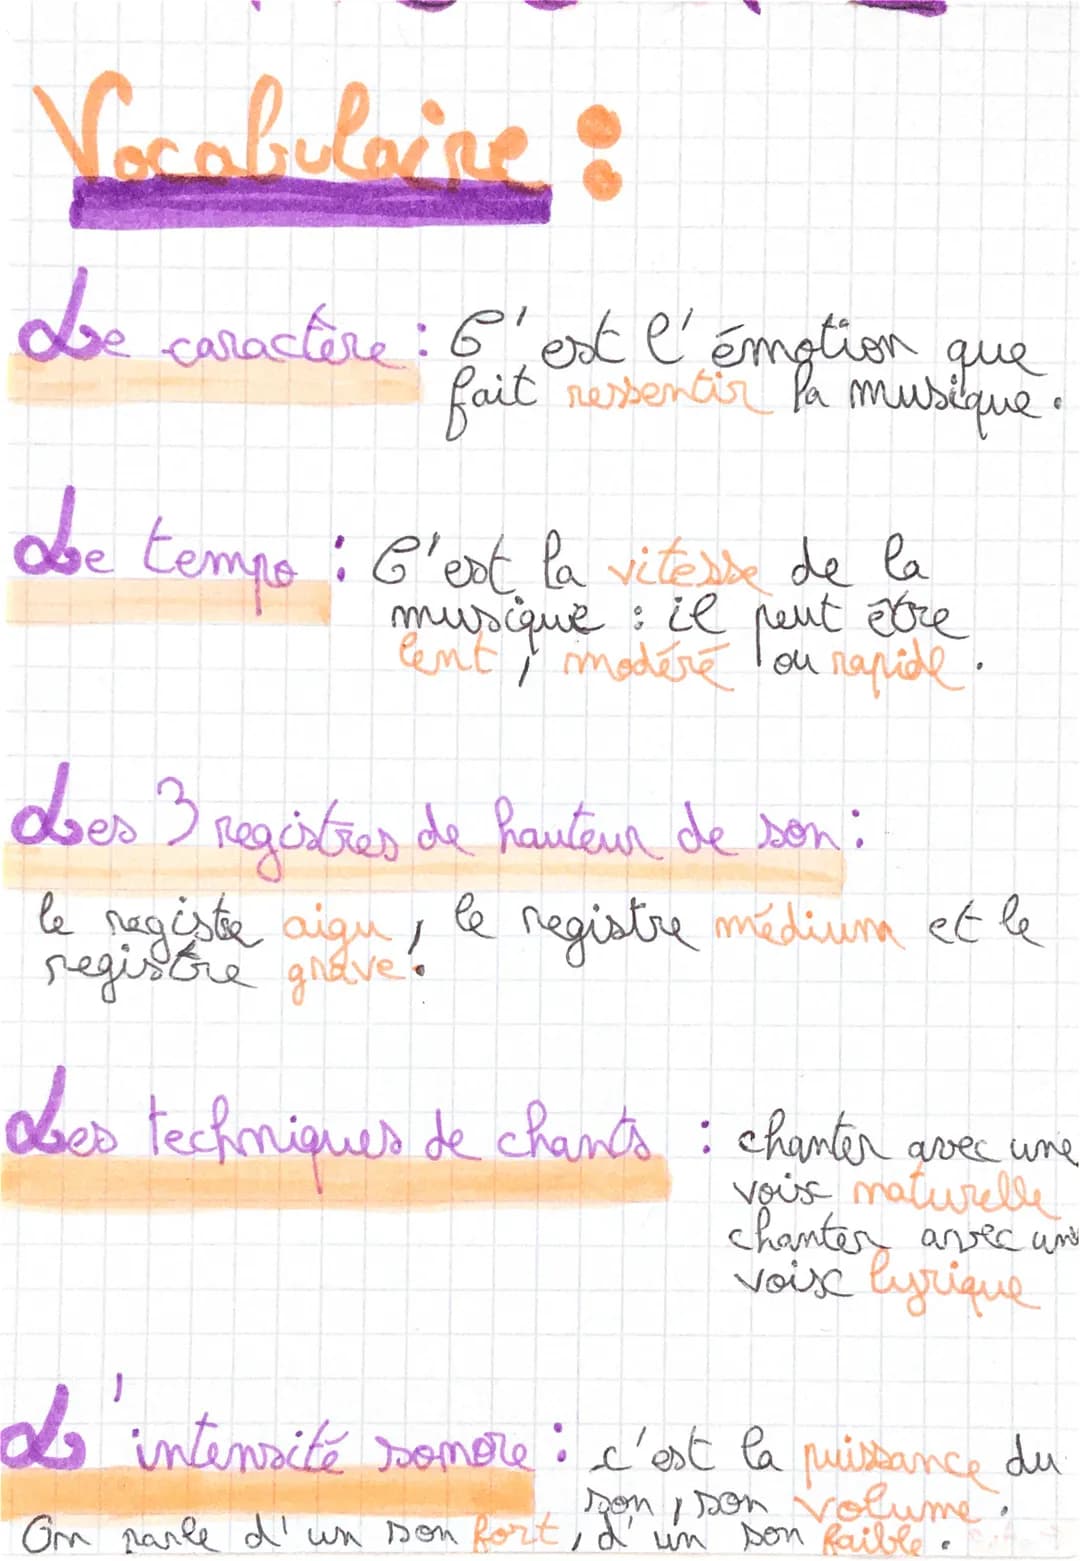 Vocabulaire :
Le caractère : C'est l'émotion que
fait ressentir la musique.
Le tempo : C'est la vitesse de la
musique : il peut être
lent, modéré ou rapide.
Les 3 registres de hauteur de son :
le registe aigu, le registre médium et le
registre grave.
Les techniques de chants : chanter avec une
voix naturelle
chanter avec une
voix lyrique
L'intensité sonore : c'est la puissance du
son, son volume.
On parle d'un son fort, d'un son faible.